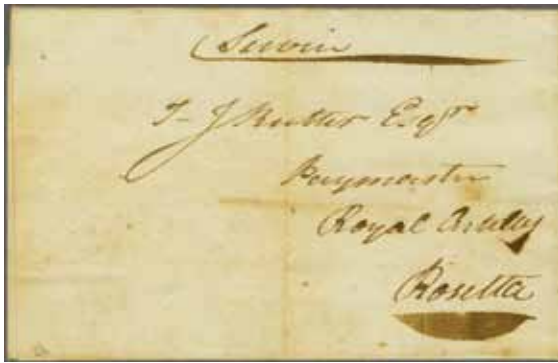 Service
T J Rutter Esqr
Paymaster
Royal Artillery
Rosetta